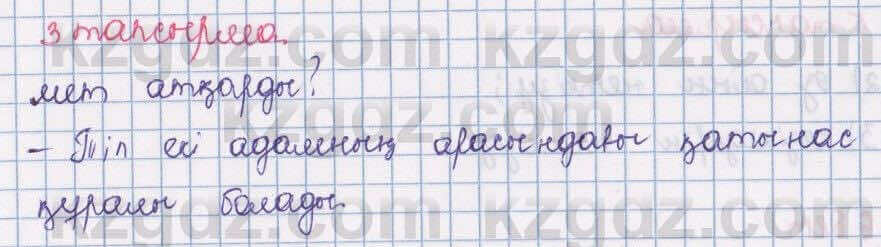 3 тапсырма.
мет атқарды?
- Тіл екі адамның арасындағы қатынас
құралы болады.
kzgdz.com kzgdz.com
kzgdz.com kzgdz.com
kzgdz.com kzgdz.com